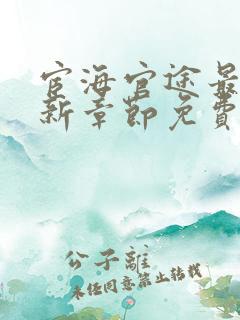 宦海官途最
新章節免費
公子離
未经同意禁止转载